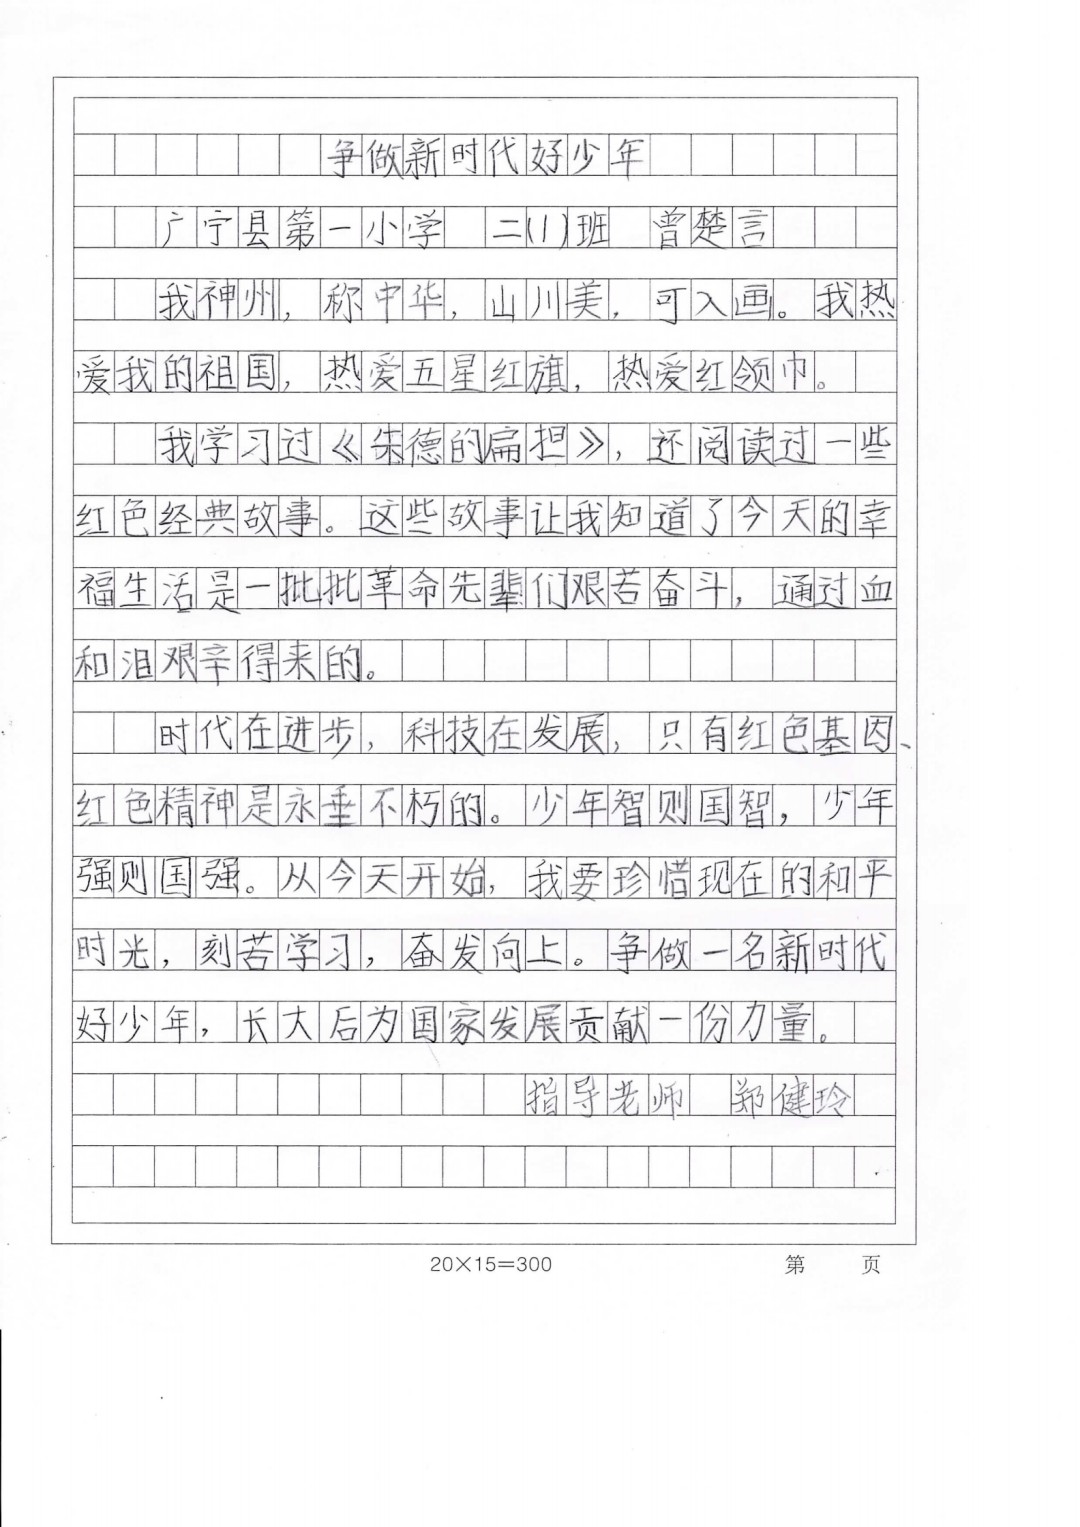 争做新时代好少年
广宁县第一小学 二(1)班 曾楚言
我神州，称中华，山川美，可入画。我热
爱我的祖国，热爱五星红旗，热爱红领巾。
我学习过《朱德的扁担》，还阅读过一些
红色经典故事。这些故事让我知道了今天的幸
福生活是一批批革命先辈们艰苦奋斗，通过血
和泪艰辛得来的。
时代在进步，科技在发展，只有红色基因、
红色精神是永垂不朽的。少年智则国智，少年
强则国强。从今天开始，我要珍惜现在的和平
时光，刻苦学习，奋发向上。争做一名新时代
好少年，长大后为国家发展贡献一份力量。
指导老师 郑健玲
20×15=300 第 页